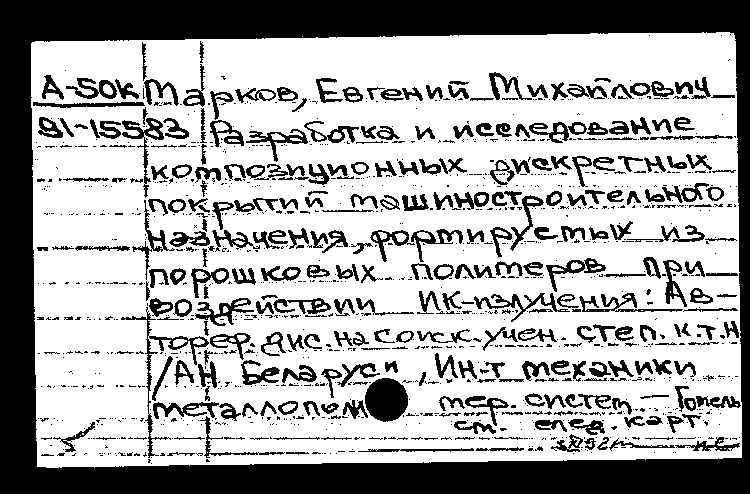 А-50К Марков, Евгений Михайлович
91-15583 Разработка и исследование
композиционных дискретных
покрытий машиностроительного
назначения, формируемых из
порошковых полимеров при
воздействии ИК-излучения: Ав-
тореф. дис. на соиск. учен. степ. к.т.н
/АН Беларуси, Ин-т механики
металлополи мер. систем — Гомель
см. след. карт.